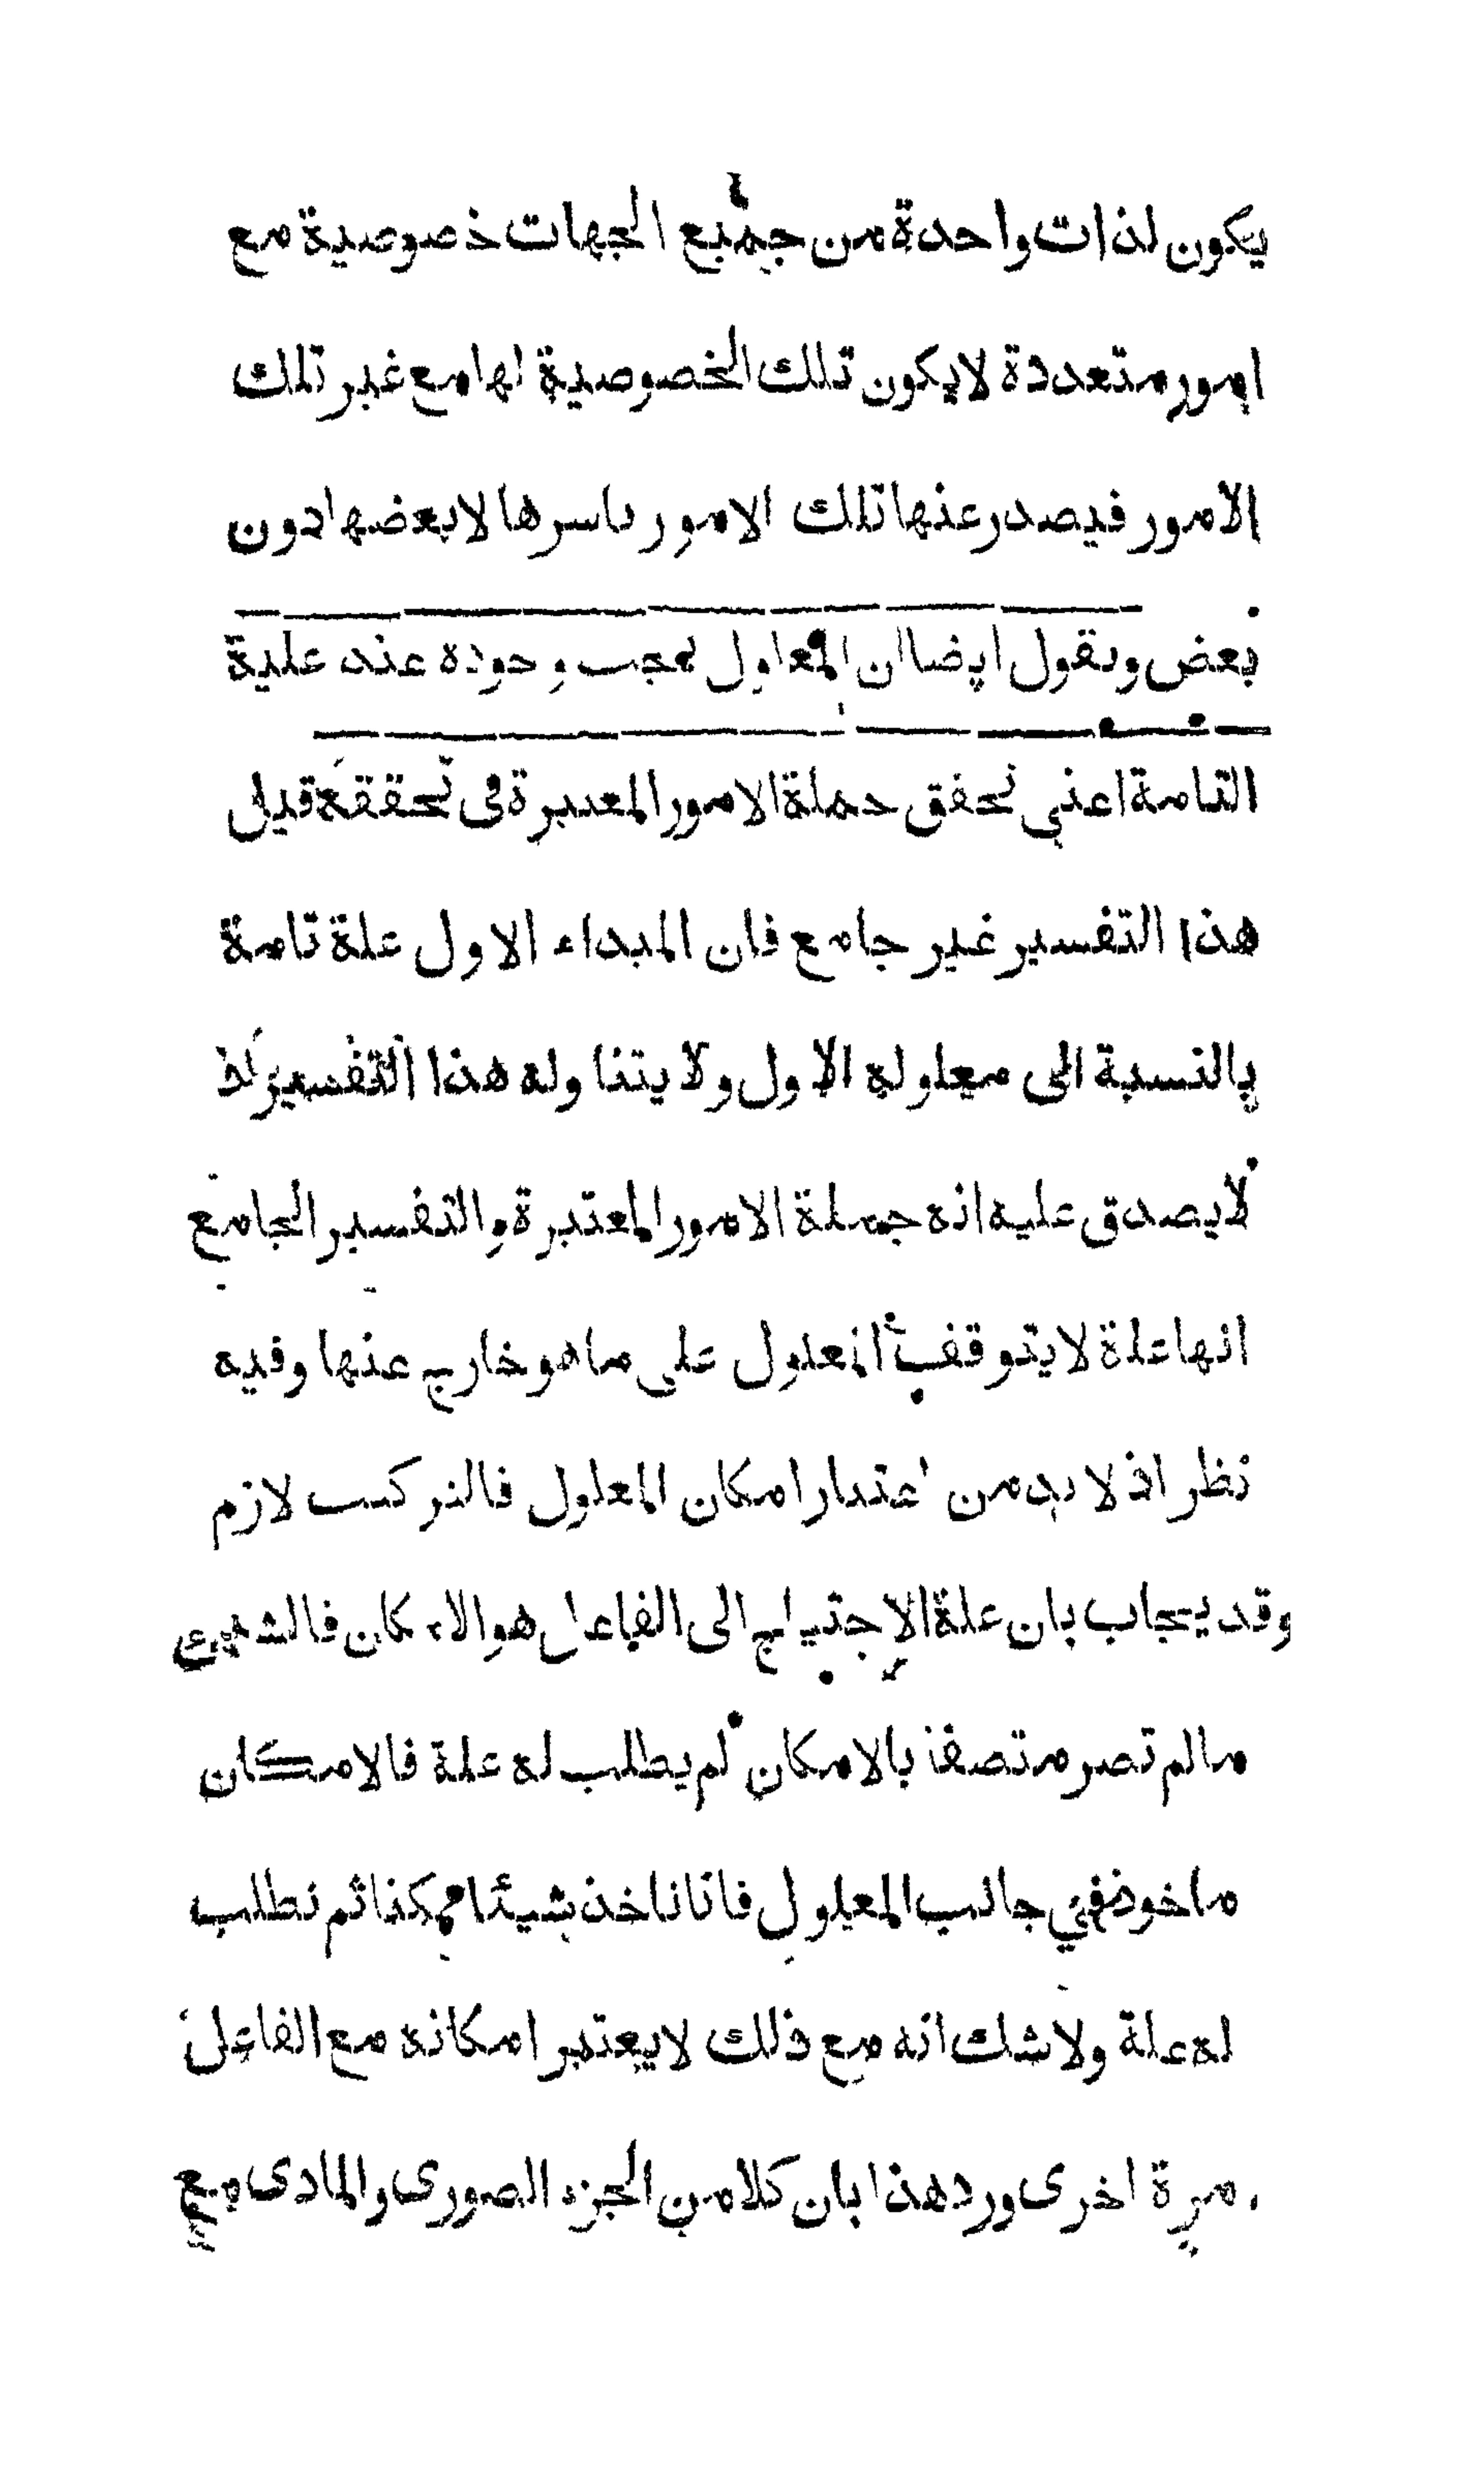 يكون لذات واحدة من جميع الجهات خصوصية مع
امور متعددة لايكون تلك الخصوصية لها مع غير تلك
الامور فيصدر عنها تلك الامور باسرها لابعضها دون
بعض ونقول ايضا ان المعلول يجب وجوده عند علية
التامة اعني تحقق جملة الامور المعتبرة فى تحققه قيل
هذا التفسير غير جامع فان المبداء الاول علة تامة
بالنسبة الى معلوله الاول ولا يتناوله هذا التفسير اذ
لايصدق عليه انه جملة الامور المعتبرة والتفسير الجامع
انها علة لايتوقف المعلول على ماهو خارج عنها وفيه
نظر اذ لا بد من اعتبار امكان المعلول فالتركيب لازم
وقد يجاب بان علة الاحتياج الى الفاعل هو الامكان فالشئ
مالم تصر متصفا بالامكان لم يطلب له علة فالامكان
ماخوذ في جانب المعلول فانا ناخذ شيئا ممكنا ثم نطلب
له علة ولاشك انه مع ذلك لايعتبر امكانه مع الفاعل
مرة اخرى ورد هذا بان كلا من الجزء الصورى والمادى مع